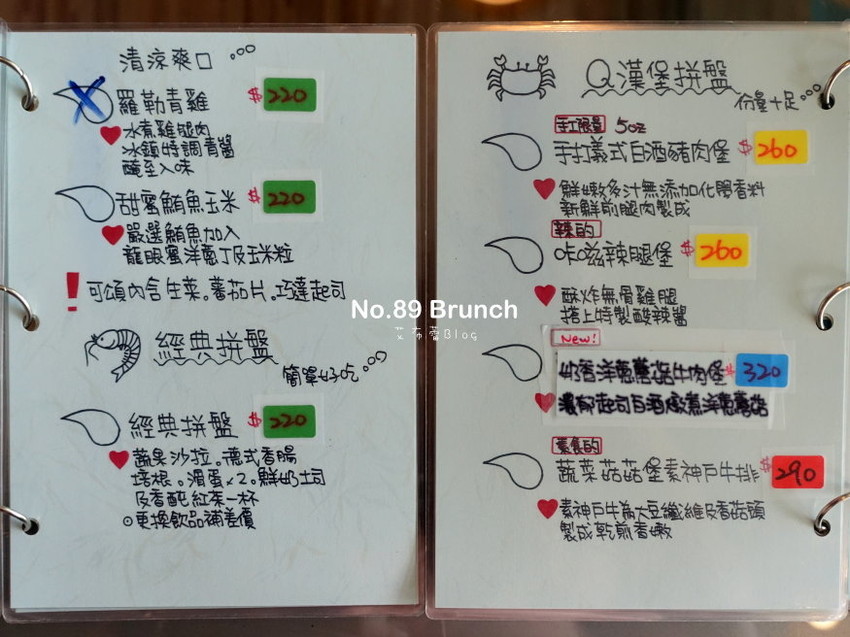 清涼爽口
羅勒青雞 $220
水煮雞腿肉
冰鎮特調青醬
醃至入味
甜蜜鮪魚玉米 $220
嚴選鮪魚加入
龍眼蜜洋蔥丁及玉米粒
! 可頌內含生菜。蕃茄片。巧達起司
經典拼盤
簡單好吃
經典拼盤 $220
蔬果沙拉。德式香腸
培根。滑蛋x2。鮮奶土司
及香醇紅茶一杯
更換飲品補差價
Q漢堡拼盤
份量十足
手工限量 5oz
手打義式白酒豬肉堡 $260
鮮嫩多汁無添加化學香料
新鮮前腿肉製成
辣的
咔滋辣腿堡 $260
酥炸無骨雞腿
搭上特製酸辣醬
New!
奶香洋蔥蘑菇牛肉堡 $320
濃郁起司白酒燉煮洋蔥蘑菇
素食的
蔬菜菇菇堡素神戶牛排 $290
素神戶牛為大豆纖維及香菇頭
製成乾煎香嫩
No.89 Brunch
艾布蕾Blog